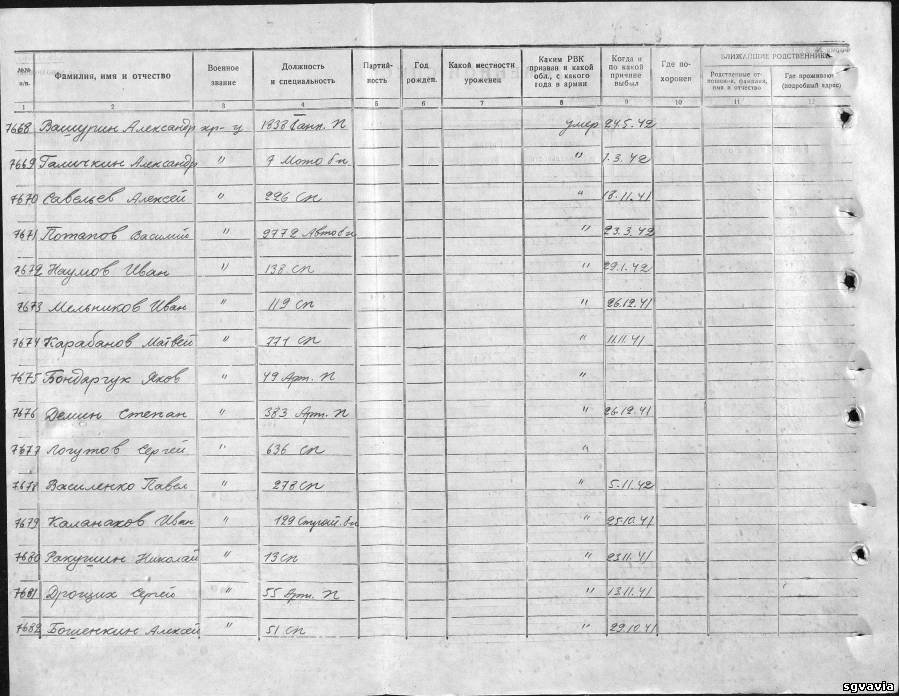 №№ п/п. Фамилия, имя и отчество Военное звание Должность и специальность Партий-ность Год рожден. Какой местности уроженец Каким РВК призван и какой обл., с какого года в армии Когда и по какой причине выбыл Где по-хоронен БЛИЖАЙШИЕ РОДСТВЕННИКИ
Родственные от-ношения, фамилия, имя и отчество Где проживают (подробный адрес)
1 2 3 4 5 6 7 8 9 10 11 12
7668 Вашурин Александр кр-ц 1838 п умер 24.5.42
7669 Галичкин Александр " 7 Мото б-н " 1.3.42
7670 Савельев Алексей " 226 сп " 18.11.41
7671 Потапов Василий " 2772 Автоб-н " 23.3.42
7672 Наумов Иван " 138 сп " 29.1.42
7673 Мельников Иван " 119 сп " 26.12.41
7674 Карабанов Матвей " 771 сп " 11.11.41
7675 Бондарчук Яков " 49 Арт. п "
7676 Демин Степан " 383 Арт. п " 26.12.41
7677 Логутов Сергей " 636 сп "
7678 Василенко Павел " 278 сп " 5.11.42
7679 Каланахов Иван " 129 б-н " 25.10.41
7680 Ракушин Николай " 13 сп " 23.11.41
7681 Дрощих Сергей " 55 Арт. п " 13.11.41
7682 Бошенкин Алексей " 51 сп " 29.10.41
sgvavia